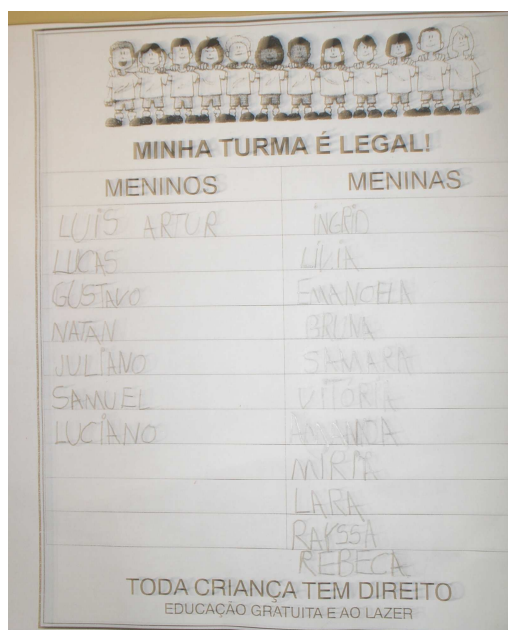 MINHA TURMA É LEGAL!
MENINOS MENINAS
LUIS ARTUR INGRID
LUCAS LÍVIA
GUSTAVO EMANOELA
NATAN BRUNA
JULIANO SAMARA
SAMUEL VITORIA
LUCIANO
MIRIA
LARA
RAYSSA
REBECA
TODA CRIANÇA TEM DIREITO
EDUCAÇÃO GRATUITA E AO LAZER